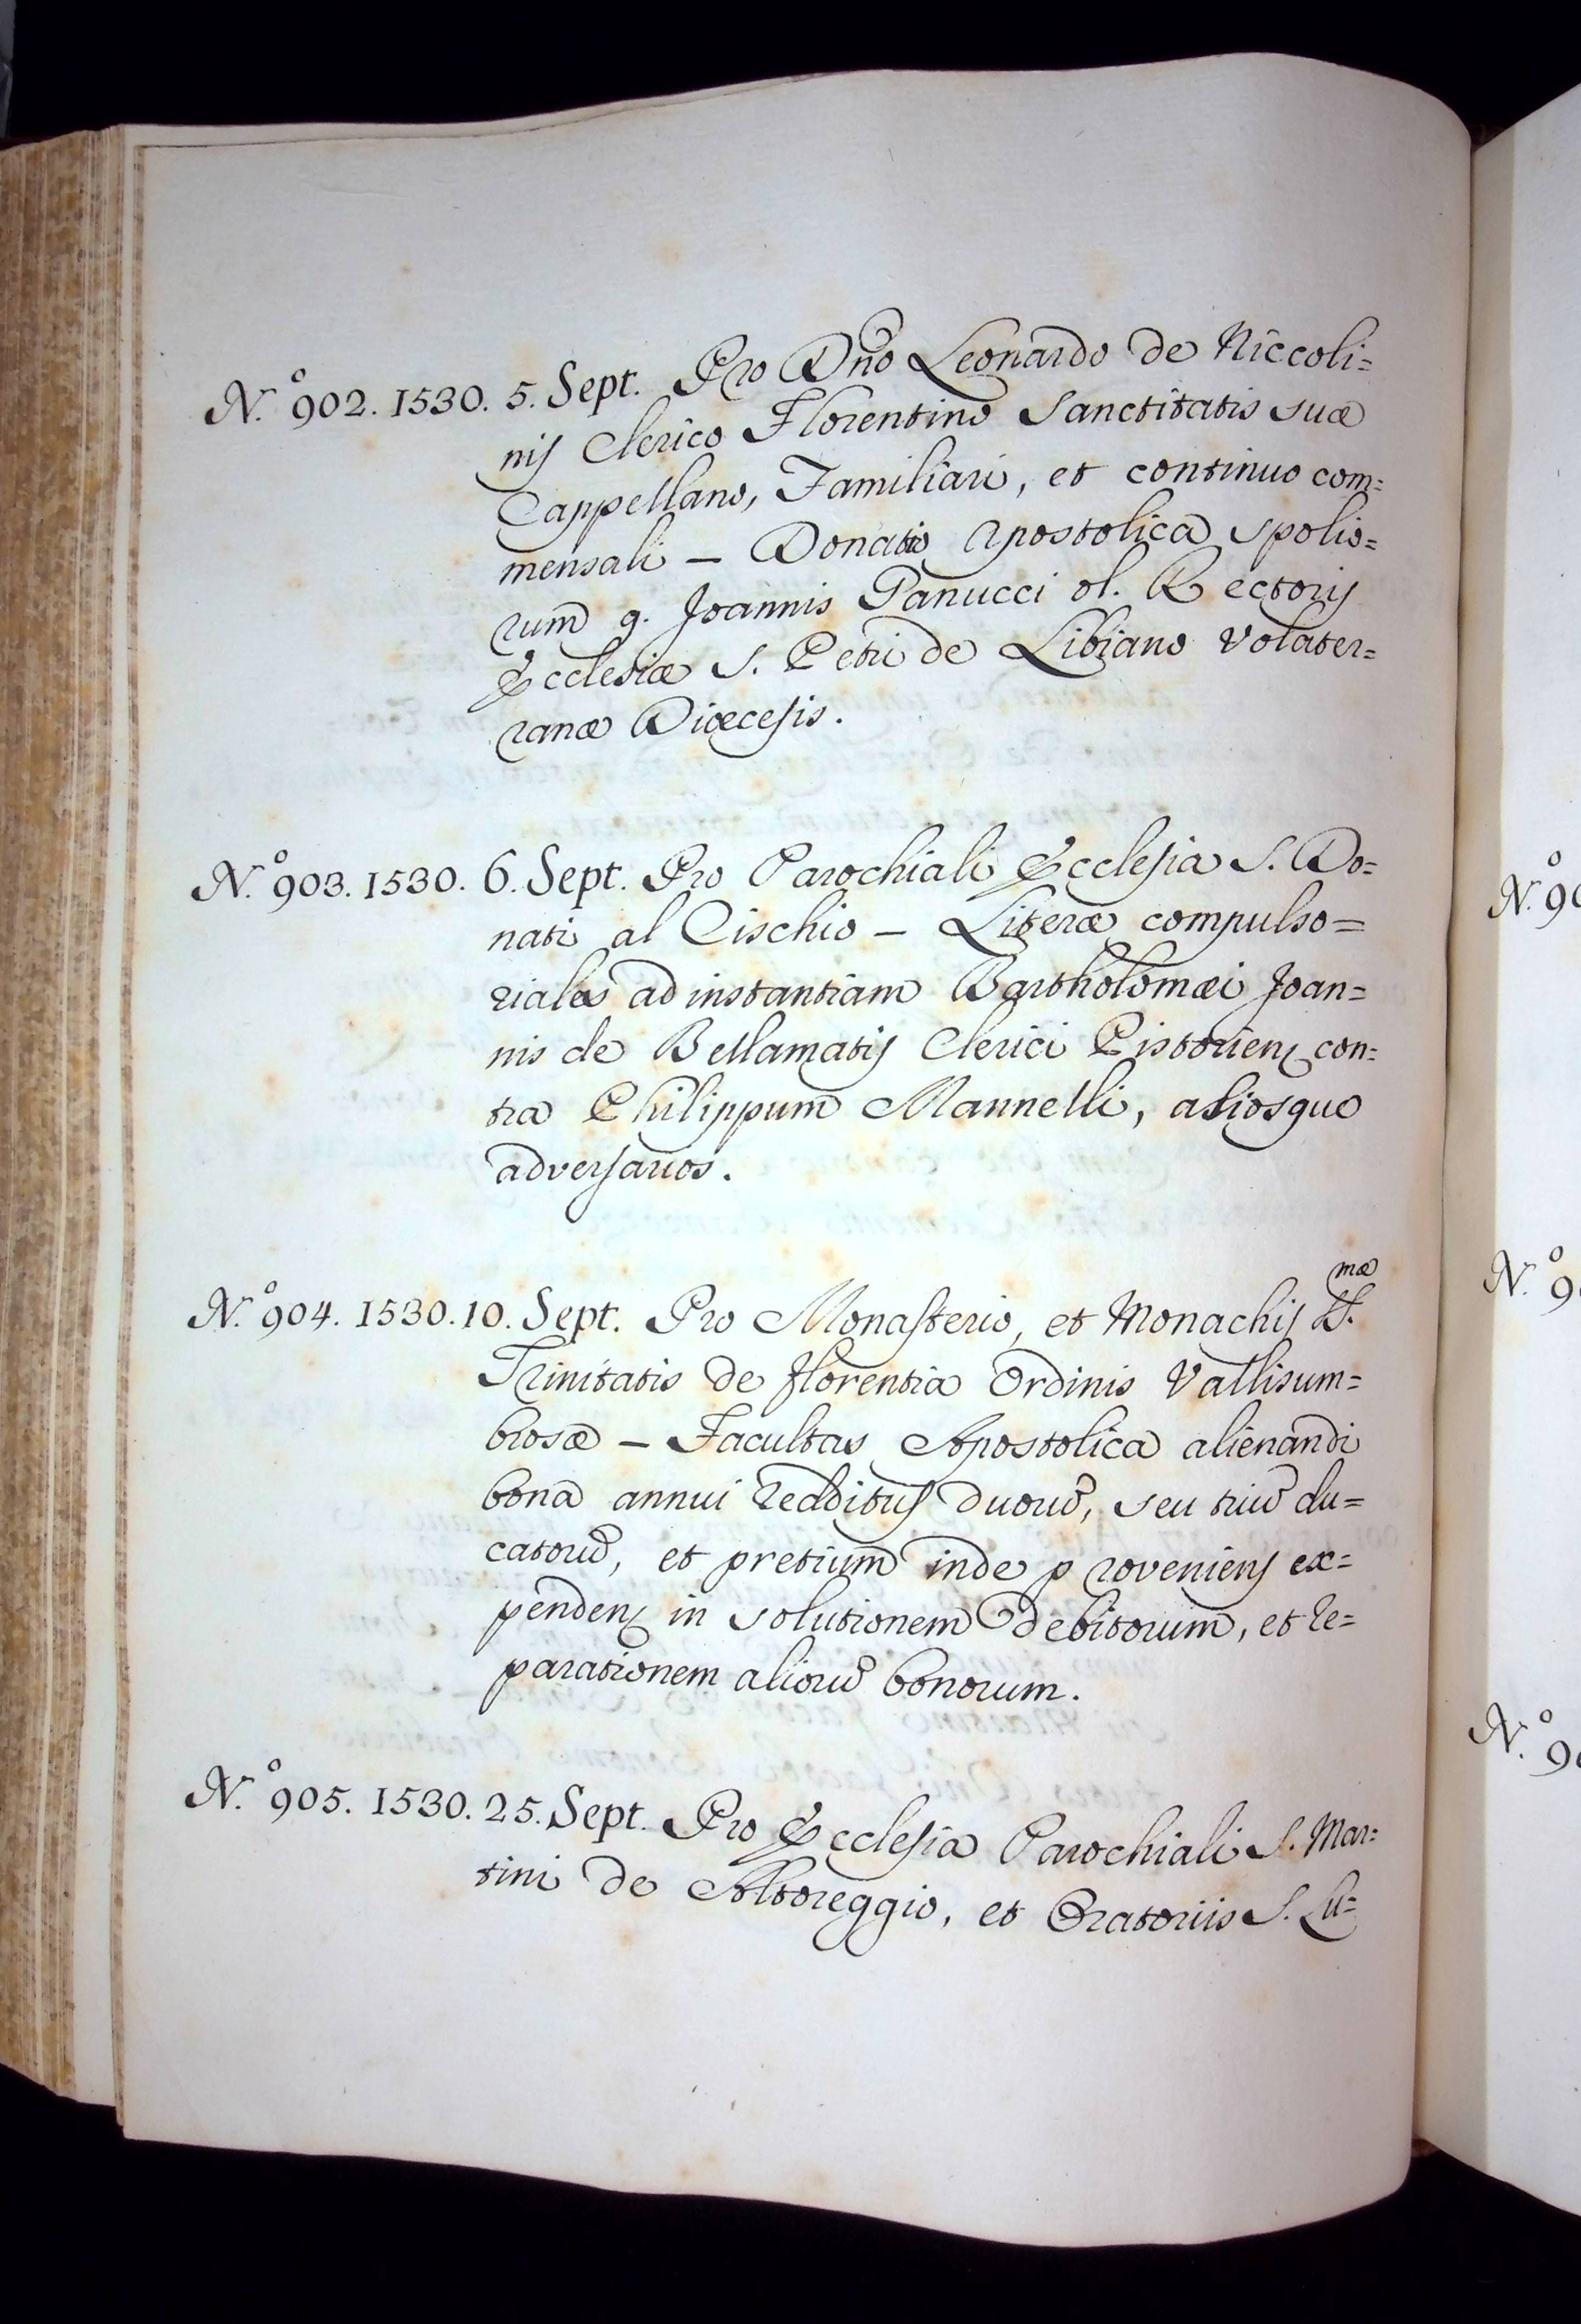 N.º 902. 1530. 5. Sept. Pro Dño Leonardo de Niccoli=
nis Clerico Florentino Sanctitatis suæ
Cappellano, Familiari, et continuo com=
mensali – Donatio Apostolica spolio=
rum q. Joannis Panucci ol. Rectoris
Ecclesiæ S. Petri de Libiano Volater=
ranæ Diœcesis.
N.º 903. 1530. 6. Sept. Pro Parochiali Ecclesia S. Do=
nati al Cischio – Literæ compulso=
riales ad instantiam Bartholomæi Joan=
nis de Bellamatis Clerici Pistoriens con=
tra Philippum Mannelli, aliosque
adversarios.
N.º 904. 1530. 10. Sept. Pro Monasterio, et Monachis SS.mæ
Trinitatis de Florentia Ordinis Vallisum=
brosæ – Facultas Apostolica alienandi
bona annui redditus duorũ, seu triũ du=
catorũ, et pretium inde proveniens ex=
pendens in solutionem debitorum, et re=
parationem aliorũ bonorum.
N.º 905. 1530. 25. Sept. Pro Ecclesia Parochiali S. Mar=
tini de Altoreggio, et Oratoriis S. Lu=
N.º 90
N.º 9
N.º 90